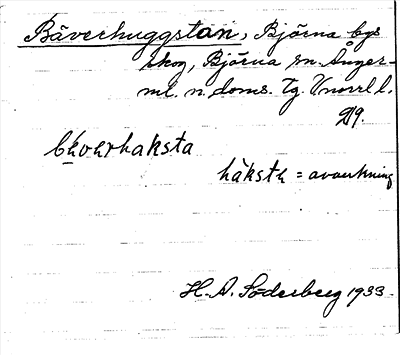 Bäverhuggstan, Björna bys
skog, Björna sn. Ånger-
ml. n. doms. Tg. Vnorrl l.
håkstɐ = avverkning
H. A. Söderberg 1933.